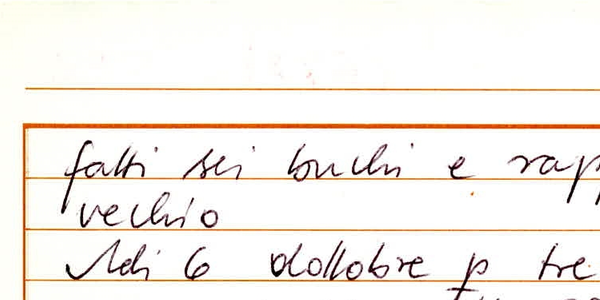 fatti sei buchi e rapp
vechio
Adi 6 dollobre p tre